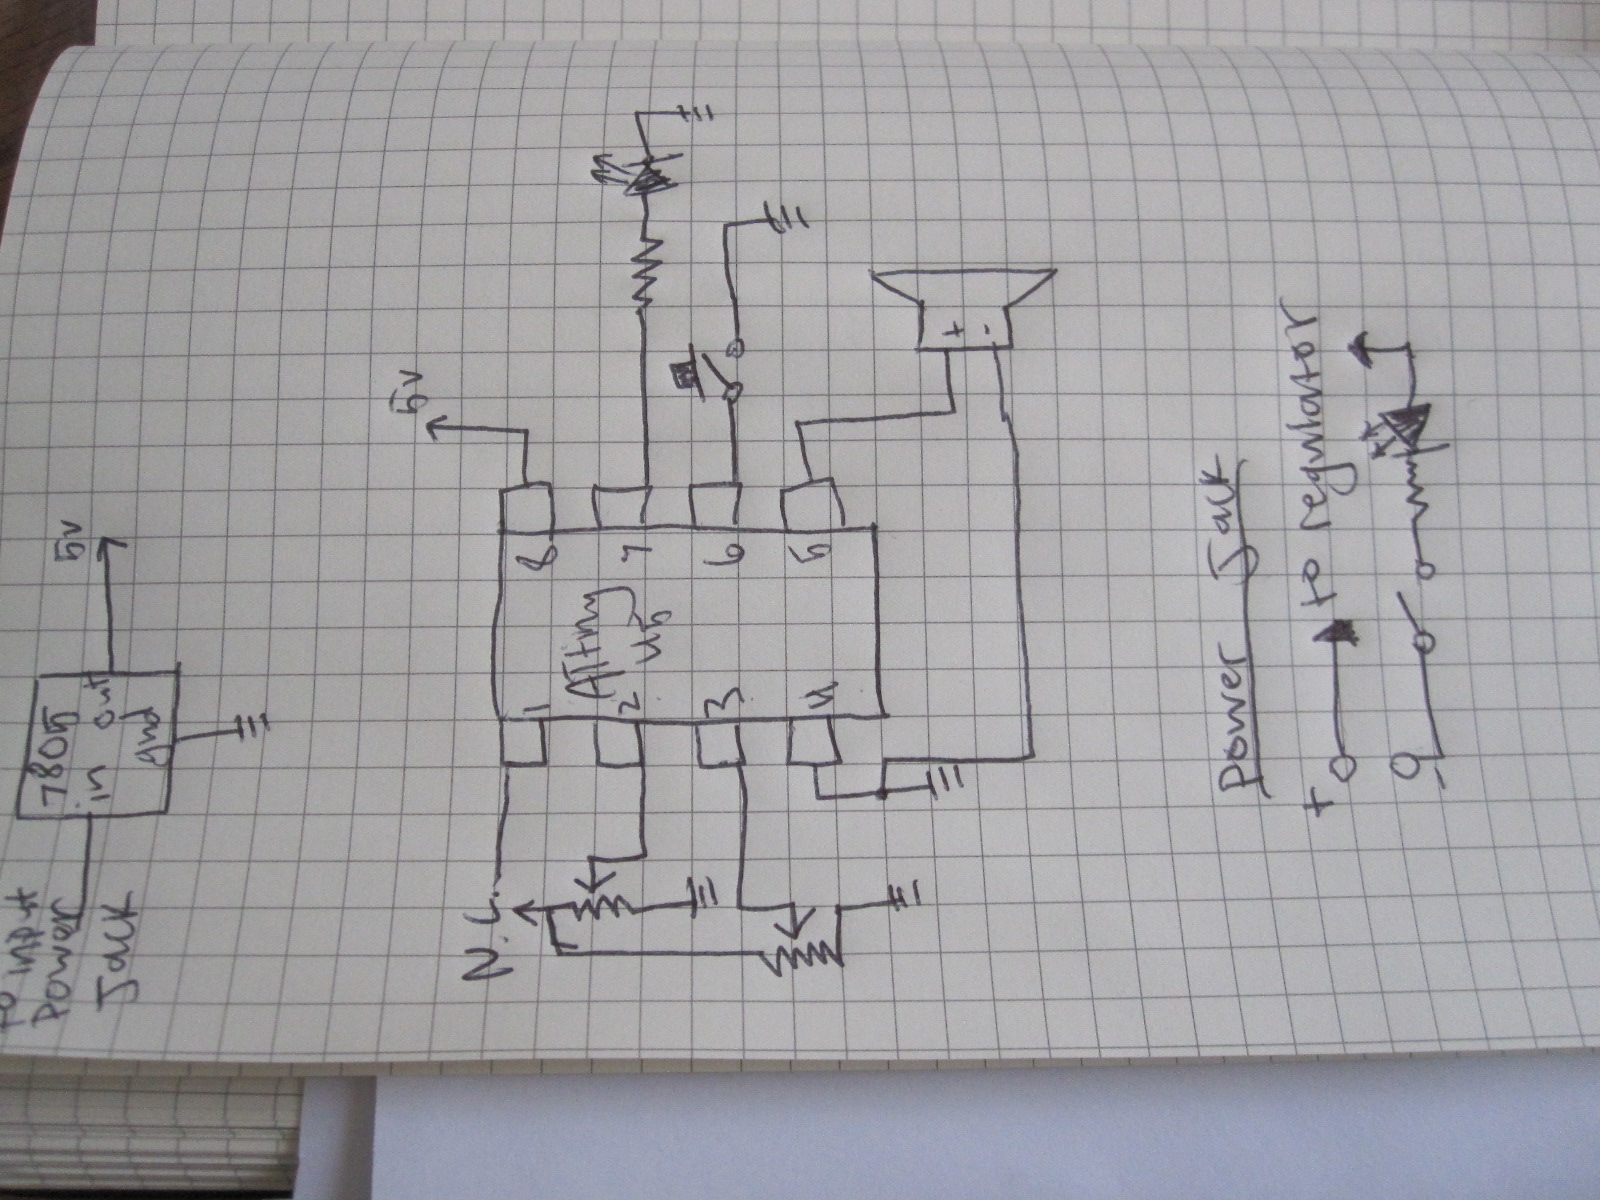 to input
Power
Jack
7805
in out
gnd
5v
5v
N.C.
1
2
3
4
ATtiny
45
8
7
6
5
+ -
Power Jack
+ to regulator
-